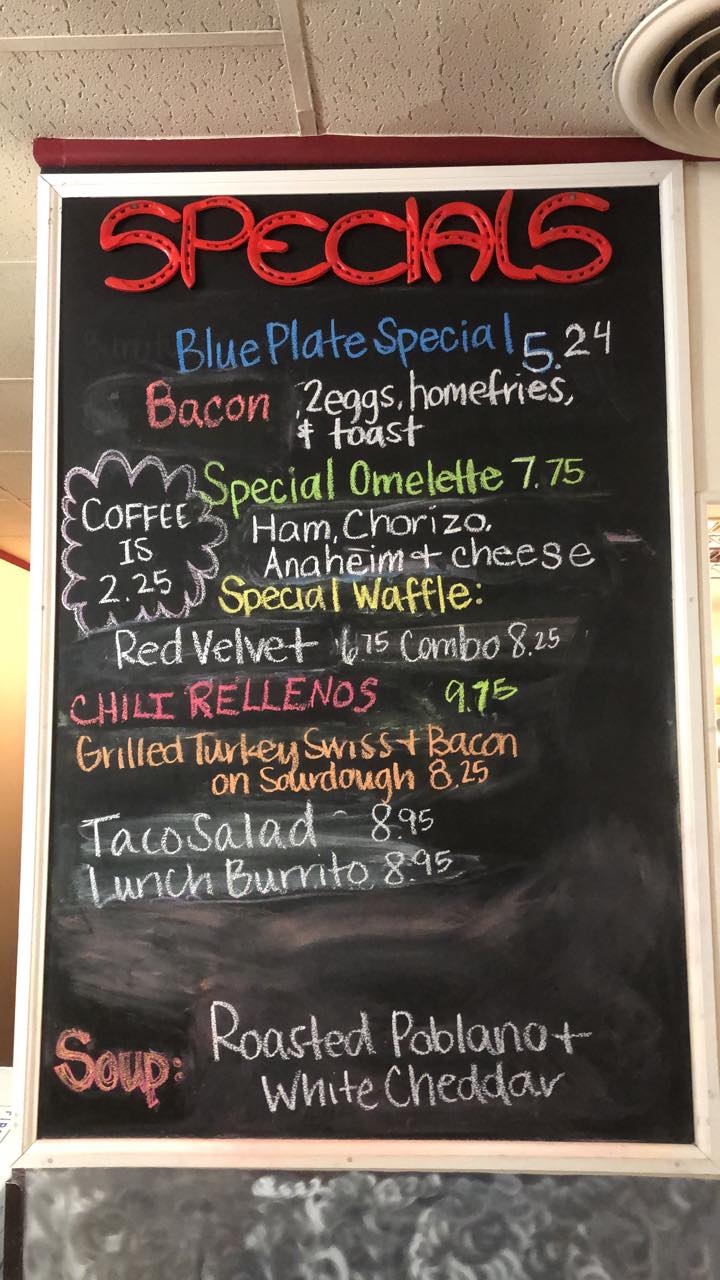 SPECIALS
Blue Plate Special 5.24
Bacon, 2eggs, homefries,
& toast
Special Omelette 7.75
COFFEE
IS
2.25
Ham, Chorizo,
Anaheim + cheese
Special Waffle:
Red Velvet 6.75 Combo 8.25
CHILI RELLENOS 9.75
Grilled Turkey Swiss + Bacon
on Sourdough 8.25
Taco Salad 8.95
Lunch Burrito 8.95
Soup: Roasted Poblano +
White Cheddar